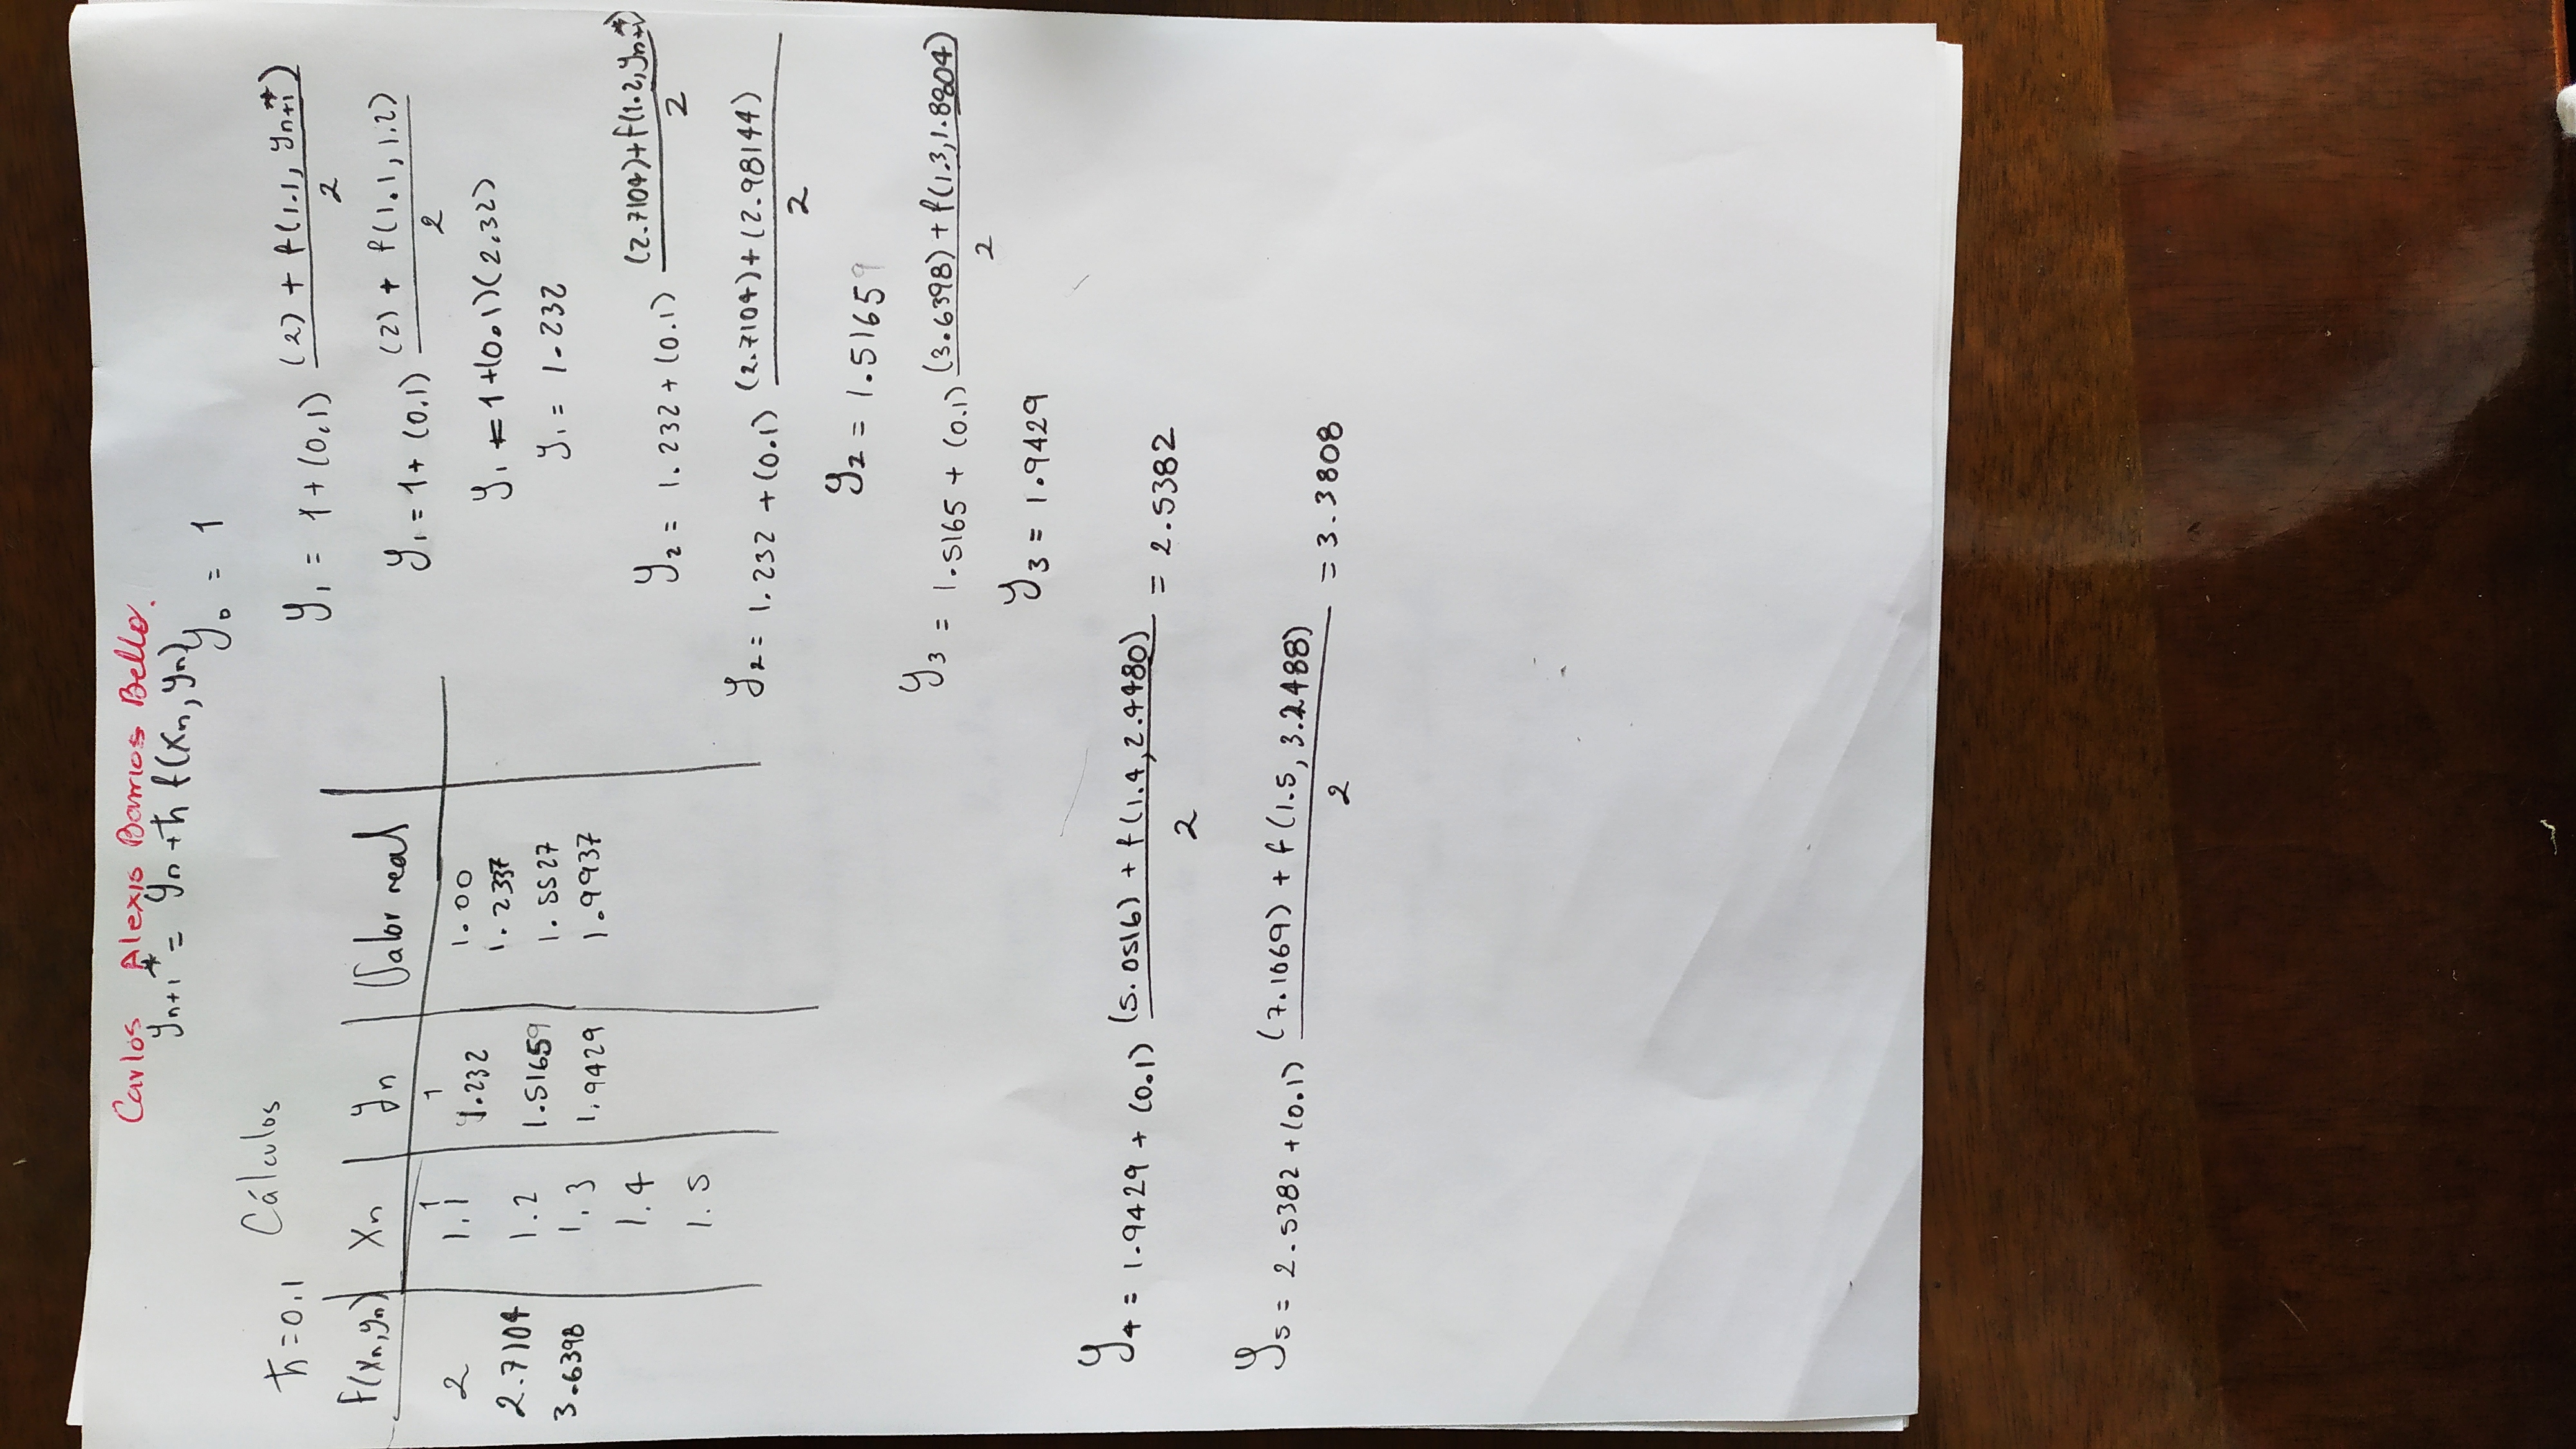 Carlos Alexis Barrios Bello.
yₙ₊₁* = yₙ + ħ f(xₙ, yₙ)
y₀ = 1
Cálculos
ħ = 0.1
f(xₙ,yₙ) | xₙ | yₙ | Valor real
1 | 1
2 | 1.1 | 1.232 | 1.00
2.7104 | 1.2 | 1.51659 | 1.2337
3.6398 | 1.3 | 1.9429 | 1.5527
1.9937
1.4
1.5
y₁ = 1 + (0.1) ((2) + f(1.1, yₙ₊₁*))/2
y₁ = 1 + (0.1) ((2) + f(1.1, 1.2))/2
y₁ = 1 + (0.1)(2.32)
y₁ = 1.232
y₂ = 1.232 + (0.1) ((2.7104) + f(1.2, yₙ₊₁*))/2
y₂ = 1.232 + (0.1) ((2.7104) + (2.98144))/2
y₂ = 1.51659
y₃ = 1.5165 + (0.1) ((3.6398) + f(1.3, 1.8804))/2
y₃ = 1.9429
y₄ = 1.9429 + (0.1) ((5.0516) + f(1.4, 2.4480))/2 = 2.5382
y₅ = 2.5382 + (0.1) ((7.1069) + f(1.5, 3.2488))/2 = 3.3808